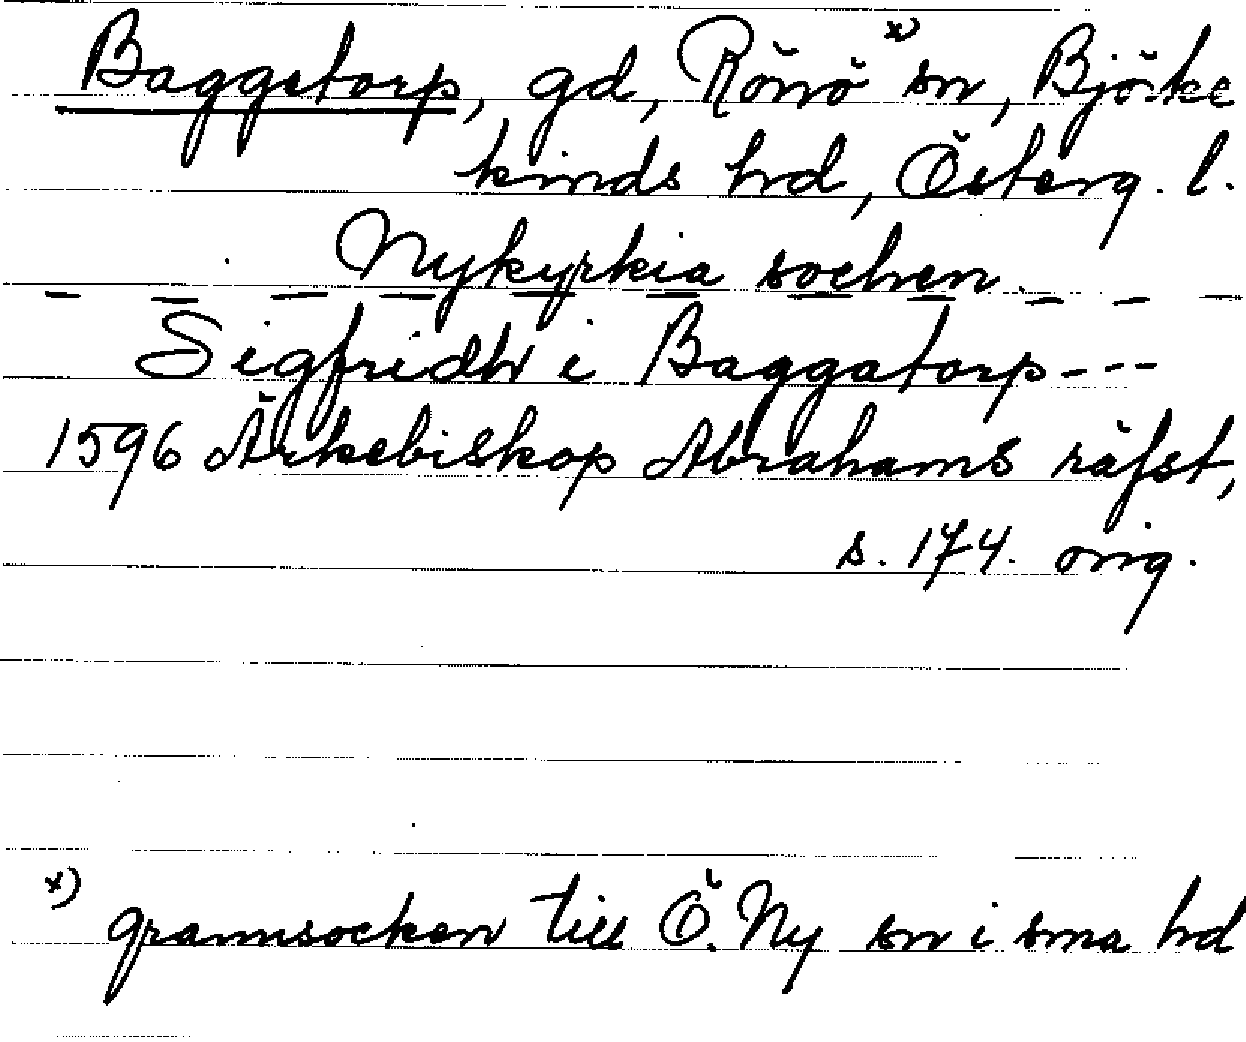 Baggetorp, gd, Rönö x) sn, Björke
kinds hd, Österg. l.
Nykyrkia sochen.
— — — — — — — — — —
Sigfridh i Baggatorp - - -
1596 Ärkebiskop Abrahams räfst,
s. 174. orig.
x) grannsocken till Ö. Ny sn i sma hd